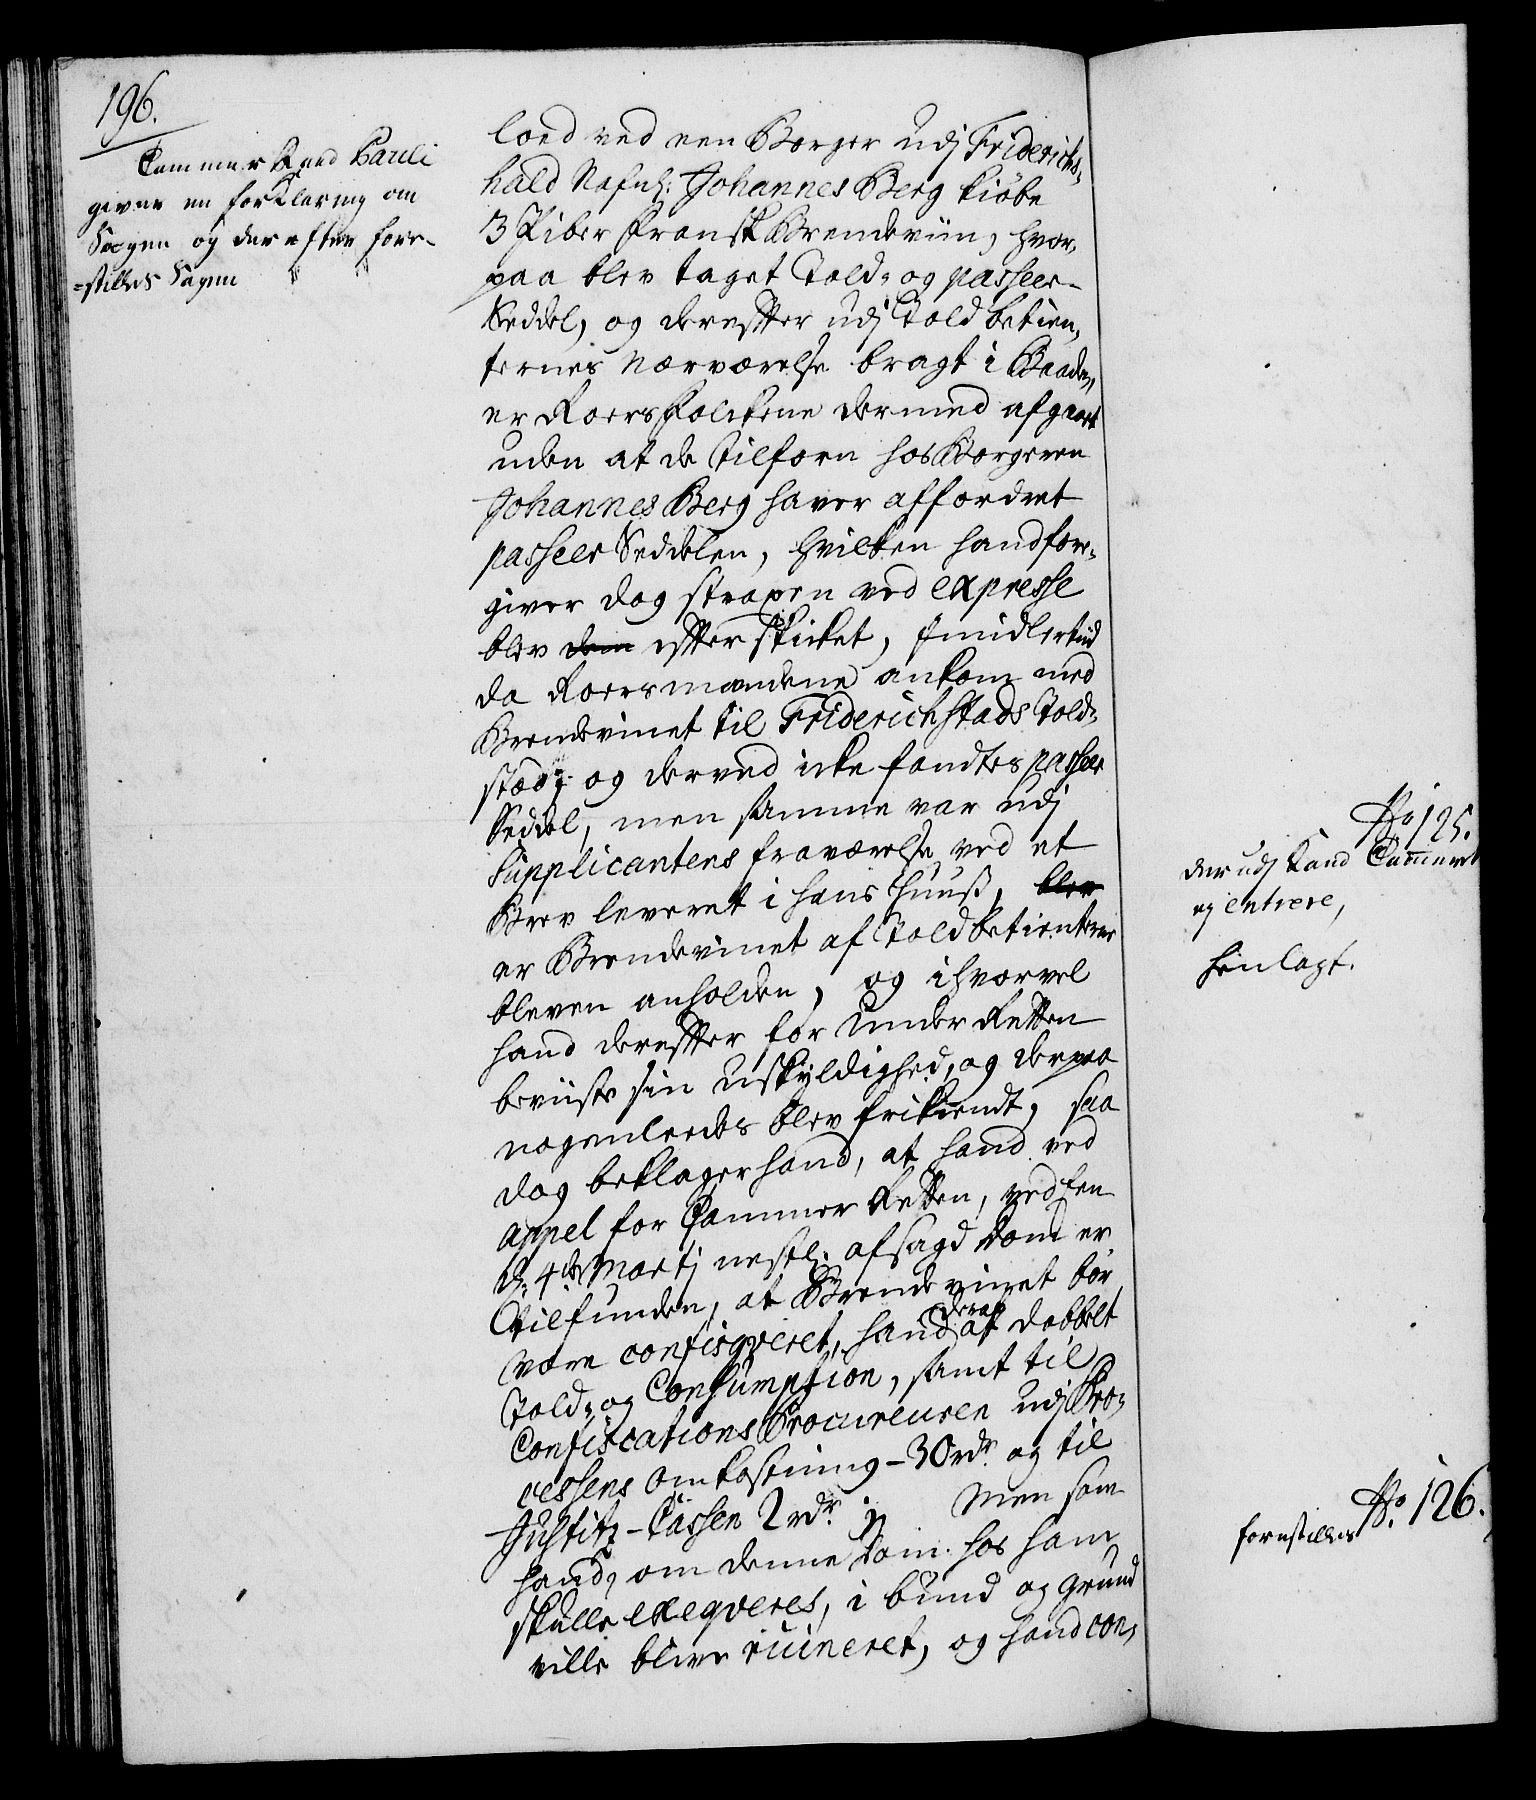 196.
Cammer Raad Pauli
giver en forklering om
Sagen og derefter fore-
=stilles Sagen
loed ved een Borger udj Friderichs-
hald Nafnl: Johannes Berg kiöbe
3 Piber Fransk Brendeviin, hvor,
paa blev taget Told- og passeer-
Seddel, og derefter udj Told betien,
ternes nærværelse bragt i Baaden,
er Roersfolckene dermed afgaaet
uden at de tilforn hos Borgeren
Johannes Berg haver affordret
passeer Seddelen, hvilken hand fore-
giver dog straxen ved expresse
blev dem efter skicket, Imidlertiid
da Roersmændene ankom med
Brendevinet til Friderichstads Told-
stæd, og derved icke fandtes passeer
Seddel, men samme var udj
Supplicantens fraværelse ved et
Brev leveret i hans Huuß, blev
er Brendevinet af Toldbetienterne
bleven anholden, og ihvorvel
hand derefter for Under Retten
beviiste sin uskyldighed, og derpaa
nogenledes blev frikiendt, saa
dog beklager hand, at hand ved
appel for Cammer Retten, ved een
d: 4de Martj nestl: afsagd Dom er
tilfunden, at Brendevinet bör
være confisqveret, hand deraf at dobbelt
Told- og Consumption, samt til
Confiscations Procureuren udj Pro-
cessens omkostning - 30 rdr. og til
Justitz-Cassen 2 rdr. Men som
hand, om denne Dom hos ham
skulle exeqveres, i bund og grund
ville blive ruineret, og hand con,
No. 125.
der udj kand Cammeret
ej entrere,
henlagt.
No. 126.
forestilles